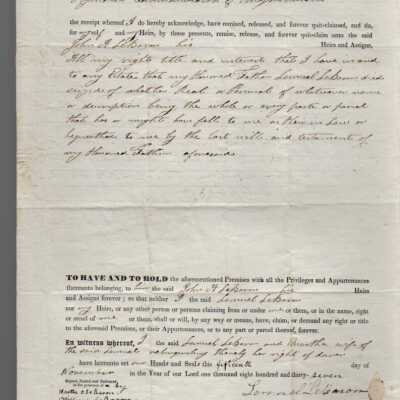 the receipt whereof I do hereby acknowledge, have remised, released, and forever quit-claimed, and do,
for myself and my Heirs, by these presents, remise, release, and forever quit-claim unto the said
John A LeBaron his Heirs and Assigns,
All my right title and interest that I have in and
to any Estate that my Honored Father Lemuel LeBaron died
seized of whether Real or Personal of whatever name
or description being the whole or every part or parcel
that has or might have fell to me as Heir in Law or
bequeathed to me by the last will and testament of
my Honored Father aforesaid
TO HAVE AND TO HOLD the aforementioned Premises with all the Privileges and Appurtenances
thereunto belonging, to him the said John A LeBaron his Heirs
and Assigns forever; so that neither I the said Lemuel LeBaron
nor my Heirs, or any other person or persons claiming from or under me or them, or in the name, right
or stead of me or them, shall or will, by any way or means, have, claim, or demand any right or title
to the aforesaid Premises, or their Appurtenances, or to any part or parcel thereof, forever.
In witness whereof, I the said Lemuel LeBaron and wife of
the said Lemuel relinquishing thereby her right of dower
have hereunto set our Hands and Seals this fifteenth day of
November in the Year of our Lord one thousand eight hundred and thirty-seven
Signed, Sealed and Delivered
in the presence of
Lemuel LeBaron
LeBaron